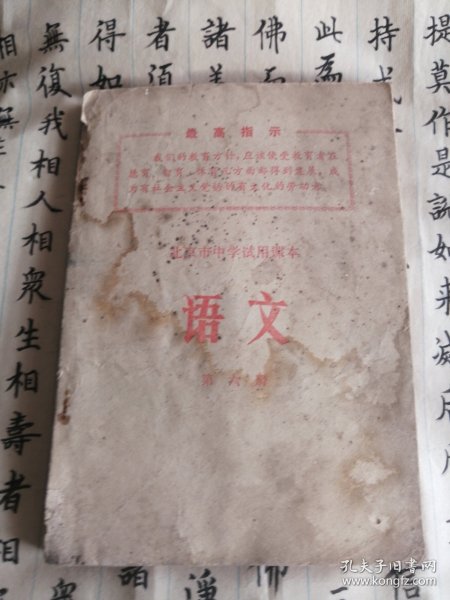 最高指示
我们的教育方针，应该使受教育者在
德育、智育、体育几方面都得到发展，成
为有社会主义觉悟的有文化的劳动者。
北京市中学试用课本
语文
第六册
提莫作是說如来滅
持
此
佛
諸
者須
得如
無復我相人相衆生相壽者相
相亦無
孔夫子旧书网
www.kongfz.com